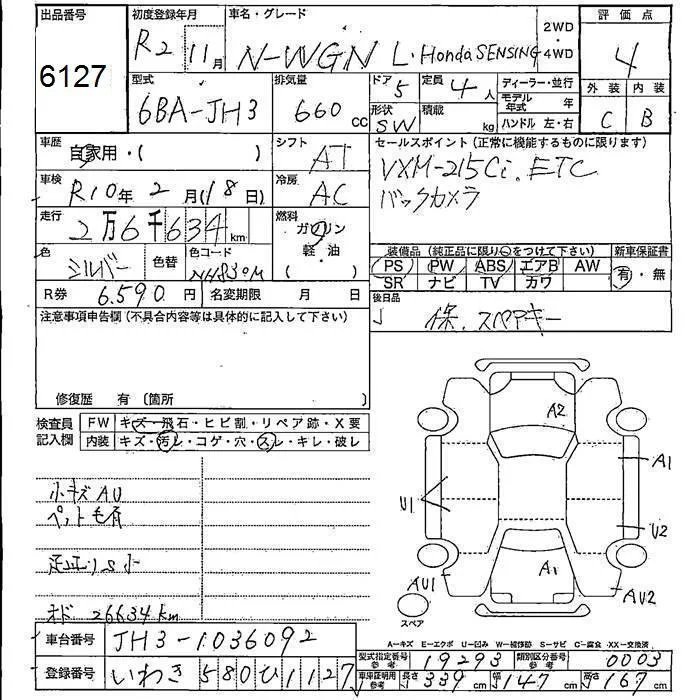 出品番号 初度登録年月 車名・グレード 2WD・4WD 評価点
6127 R2 11月 N-WGN L・Honda SENSING 4
型式 排気量 ドア 定員 ディーラー・並行 外装 内装
6BA-JH3 660cc 5 4人 モデル年式 年 C B
形状 積載 ハンドル 左・右
SW kg
車歴 シフト セールスポイント(正常に機能するものに限ります)
自家用・( ) AT VXM-215Ci. ETC
車検 冷房 バックカメラ
R10年2月(18日) AC
走行 燃料
2万6千634km ガソリン
色 色替 色コード 軽・油
シルバー NH830M ( )
装備品(純正品に限り○をつけて下さい) 新車保証書
PS PW ABS エアB AW 有・無
SR ナビ TV カワ
R券 6.590円 名変期限 月 日 後日品
保. スペアキー
注意事項申告欄(不具合内容等は具体的に記入して下さい)
修復歴 有 〔箇所 〕
検査員記入欄 FW キズ・飛石・ヒビ割・リペア跡・X要
内装 キズ・汚レ・コゲ・穴・スレ・キレ・破レ
小キズAU
ペット毛有
オド 26634km
A2
A1
U1
U2
A1
AU1
AU2
スペア
A-キズ E-エクボ U-凹み W-補修跡 S-サビ C-腐食 XX-交換済
車台番号 JH3-1036092
型式指定番号 参考 19293 類別区分番号 参考 0003
登録番号 いわき 580 ひ 1127
車庫証明用 参考 長さ 339cm 幅 147cm 高さ 167cm